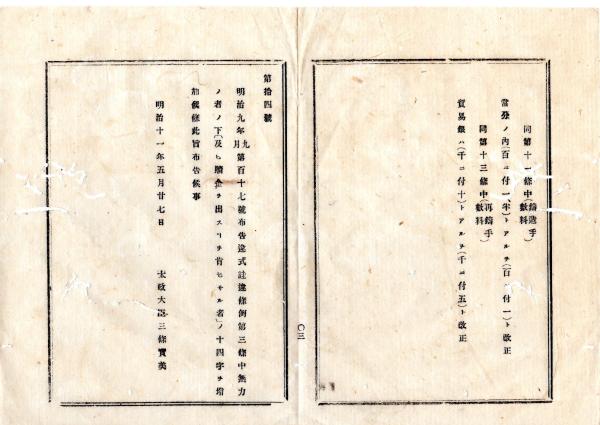 同第十一條中(鑄造手數料)
常器ノ內(百ニ付一、半)トアルヲ(百ニ付一)ト改正
同第十三條中(再鑄手數料)
貿易銀ハ(千ニ付十)トアルヲ(千ニ付五)ト改正
〇三
第拾四號
明治九年九月第百十七號布吿違式詿違條例第三條中無力
ノ者ノ下(及ヒ贖金ヲ出スヿヲ肯セサル者)ノ十四字ヲ增
加候條此旨布吿候事
明治十一年五月廿七日
太政大臣三條實美